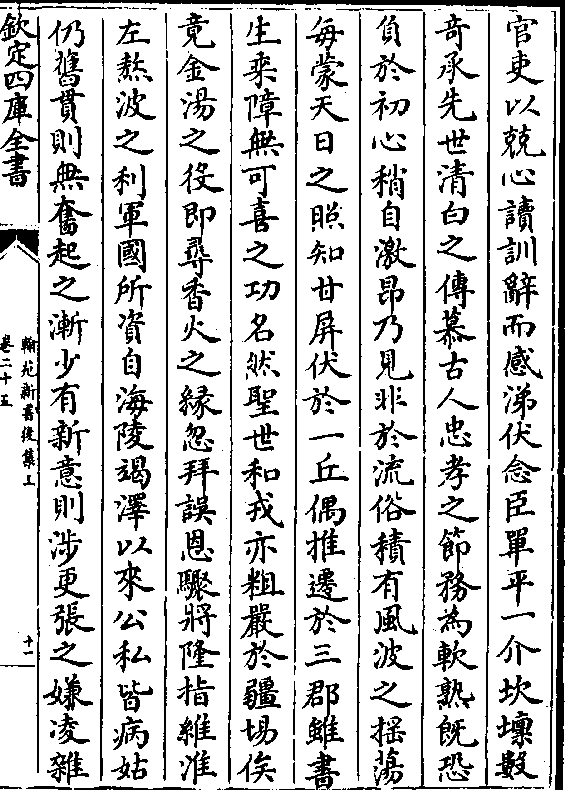 官吏以兢心讀訓辭而感涕伏念臣單平一介坎壈數
奇承先世清白之傳慕古人忠孝之節務為軟熟既恐
負於初心稍自激昂乃見非於流俗積有風波之揺蕩
每蒙天日之照知甘屏伏於一丘偶推遷於三郡雖書
生乘障無可喜之功名然聖世和戎亦粗嚴於疆埸俟
竟金湯之役即尋香火之緣忽拜誤恩驟將隆指維淮
左熬波之利軍國所資自海陵竭澤以來公私皆病姑
仍舊貫則無奮起之漸少有新意則涉更張之嫌凌雜
欽定四庫全書
翰苑新書後集上
卷二十五
十一